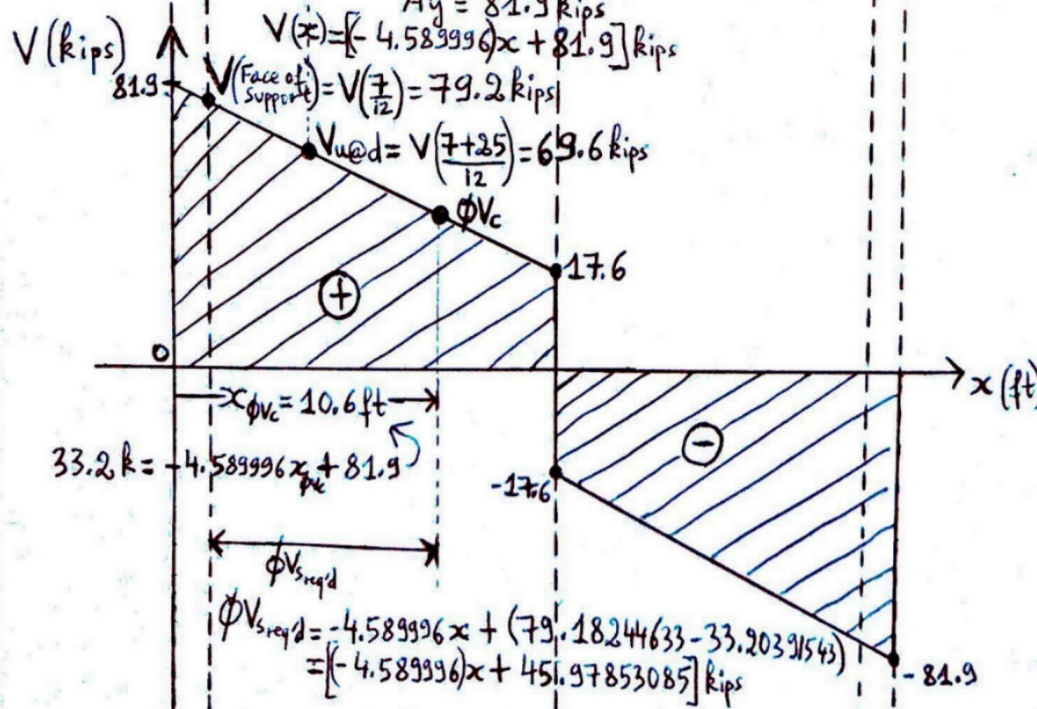 Ay = 81.9 kips
V(x)=[(-4.589996)x + 81.9] kips
V (kips)
81.9
V(Face of Support) = V(7/12) = 79.2 kips
Vu@d = V((7+25)/12) = 69.6 kips
ϕVc
17.6
+
0
x (ft)
xϕVc = 10.6 ft
-
33.2 k = -4.589996xϕVc + 81.9
-17.6
ϕVs req'd
ϕVs req'd = -4.589996x + (79.18244633 - 33.20391543)
= [(-4.589996)x + 45.97853085] kips
-81.9